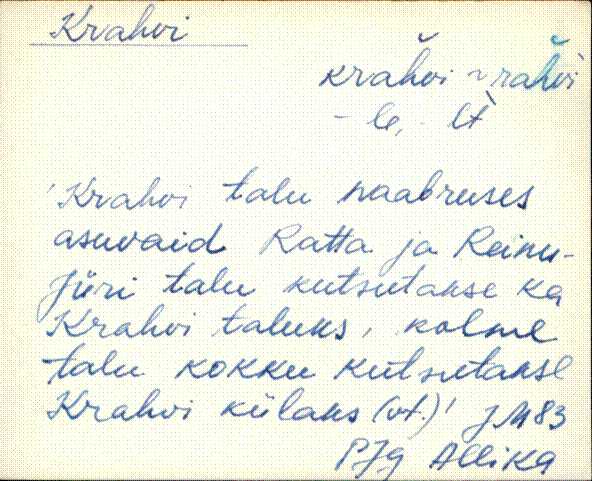 Krahvi
krahvi ~ rahvi
- le, - lt
'Krahvi talu naabruses
asuvaid Ratta ja Reinu-
Jüri talu kutsutakse ka
Krahvi taluks, kolme
talu kokku kutsutakse
Krahvi külaks (vt.)' JM83
PJg Allika